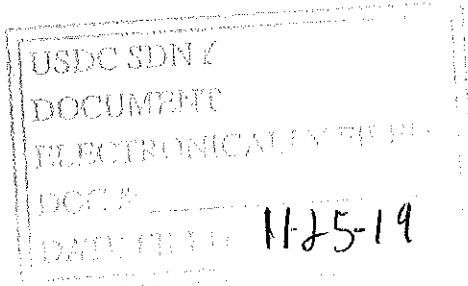 USDC SDNY
DOCUMENT
ELECTRONICALLY FILED
DOC #
DATE FILED: 11-25-19